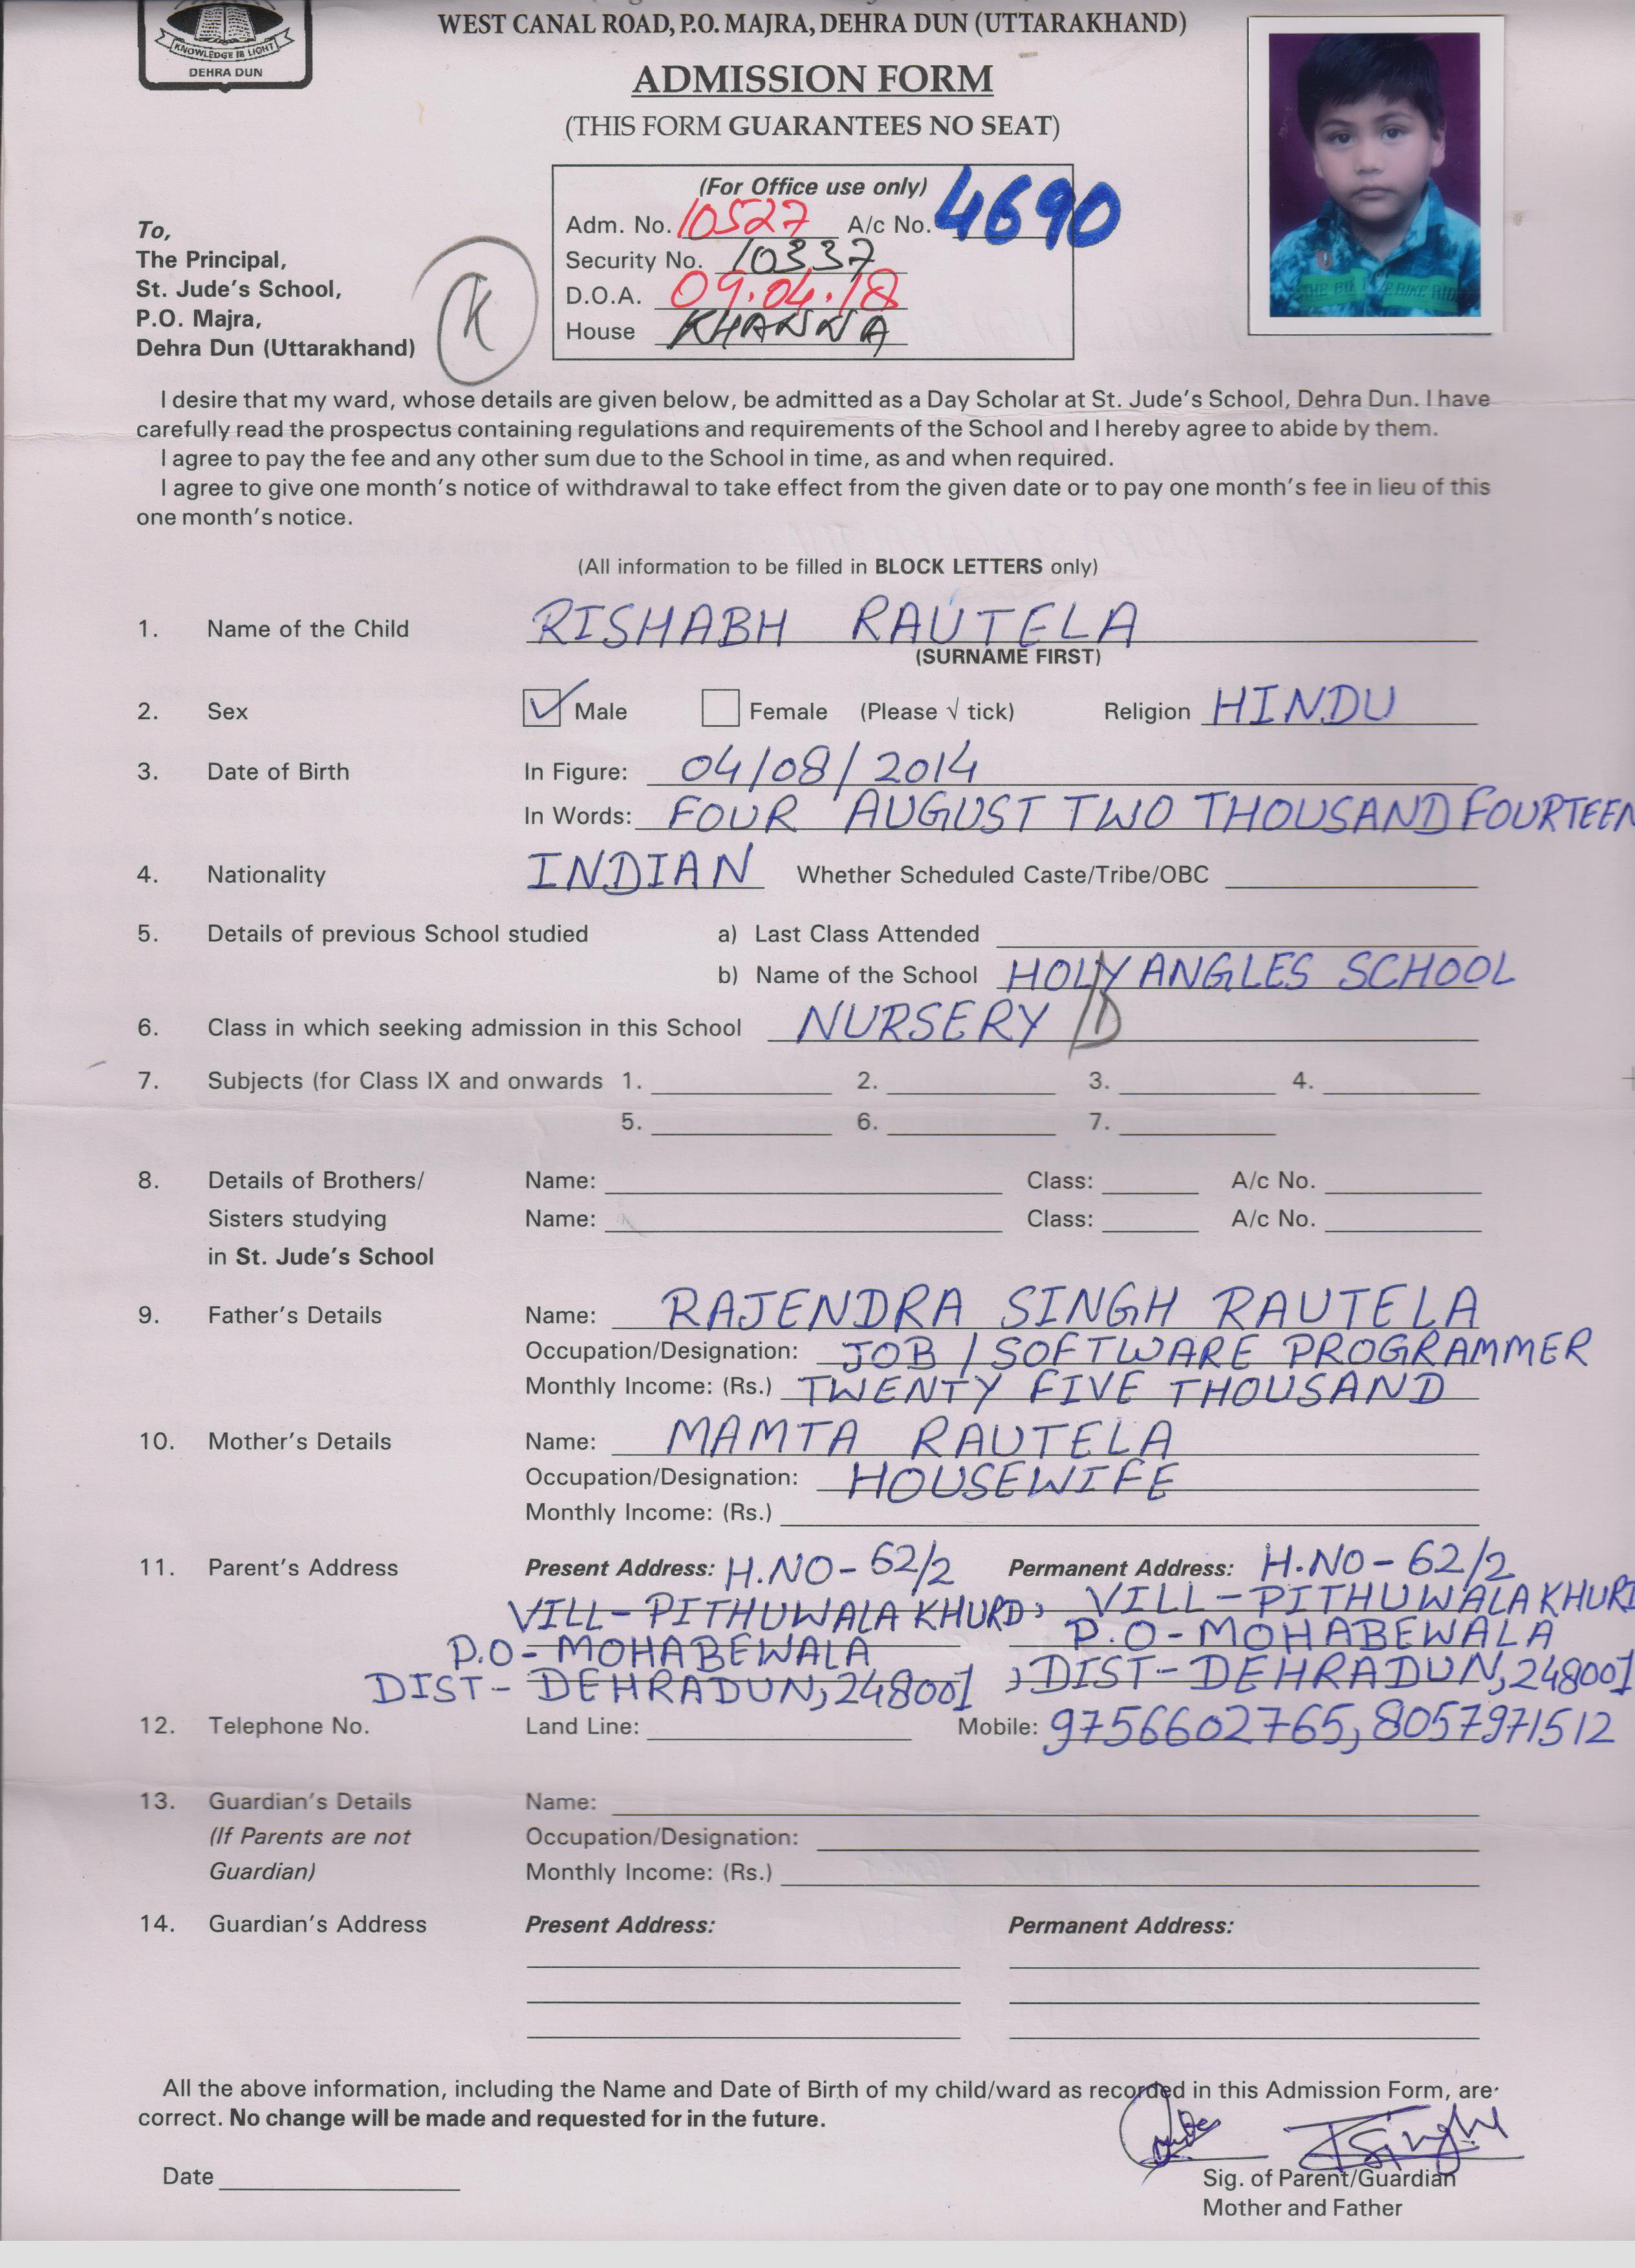 KNOWLEDGE IS LIGHT
DEHRA DUN
WEST CANAL ROAD, P.O. MAJRA, DEHRA DUN (UTTARAKHAND)
ADMISSION FORM
(THIS FORM GUARANTEES NO SEAT)
(For Office use only)
Adm. No. 10527 A/c No. 4690
Security No. 10337
D.O.A. 09.04.18
House KHANNA
To,
The Principal,
St. Jude's School,
P.O. Majra,
Dehra Dun (Uttarakhand)
K
I desire that my ward, whose details are given below, be admitted as a Day Scholar at St. Jude's School, Dehra Dun. I have
carefully read the prospectus containing regulations and requirements of the School and I hereby agree to abide by them.
I agree to pay the fee and any other sum due to the School in time, as and when required.
I agree to give one month's notice of withdrawal to take effect from the given date or to pay one month's fee in lieu of this
one month's notice.
(All information to be filled in BLOCK LETTERS only)
1. Name of the Child RISHABH RAUTELA
(SURNAME FIRST)
2. Sex Male Female (Please √ tick) Religion HINDU
3. Date of Birth In Figure: 04/08/2014
In Words: FOUR AUGUST TWO THOUSAND FOURTEEN
4. Nationality INDIAN Whether Scheduled Caste/Tribe/OBC
5. Details of previous School studied a) Last Class Attended
b) Name of the School HOLY ANGLES SCHOOL
6. Class in which seeking admission in this School NURSERY /D
7. Subjects (for Class IX and onwards 1. 2. 3. 4.
5. 6. 7.
8. Details of Brothers/ Name: Class: A/c No.
Sisters studying Name: Class: A/c No.
in St. Jude's School
9. Father's Details Name: RAJENDRA SINGH RAUTELA
Occupation/Designation: JOB / SOFTWARE PROGRAMMER
Monthly Income: (Rs.) TWENTY FIVE THOUSAND
10. Mother's Details Name: MAMTA RAUTELA
Occupation/Designation: HOUSEWIFE
Monthly Income: (Rs.)
11. Parent's Address Present Address: H.NO- 62/2 Permanent Address: H.NO- 62/2
VILL- PITHUWALA KHURD, VILL- PITHUWALA KHURD
P.O- MOHABEWALA P.O- MOHABEWALA
DIST- DEHRADUN, 248001 , DIST- DEHRADUN, 248001
12. Telephone No. Land Line: Mobile: 9756602765, 8057971512
13. Guardian's Details Name:
(If Parents are not Occupation/Designation:
Guardian) Monthly Income: (Rs.)
14. Guardian's Address Present Address: Permanent Address:
All the above information, including the Name and Date of Birth of my child/ward as recorded in this Admission Form, are
correct. No change will be made and requested for in the future.
Date
Sig. of Parent/Guardian
Mother and Father